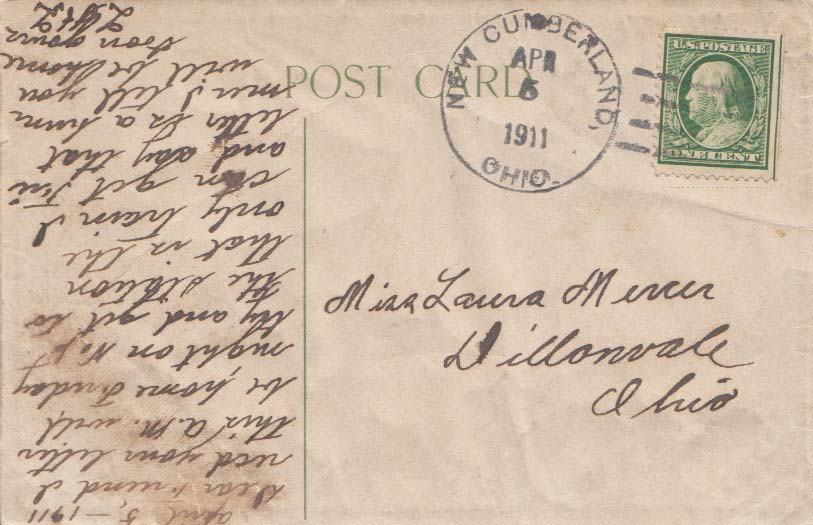 POST CARD
NEW CUMBERLAND,
APR
5
1911
OHIO.
U.S. POSTAGE
ONE CENT
Miss Laura Mercer
Dillonvale
Ohio
april 5, —1911
Dear Friend I
recd your letter
this A.M. will
be home Friday
night on No
try and get to
the station
that is the
only train I
can get Fri
and day that
letter is a hum
mer I tell you
will be home
soon yours